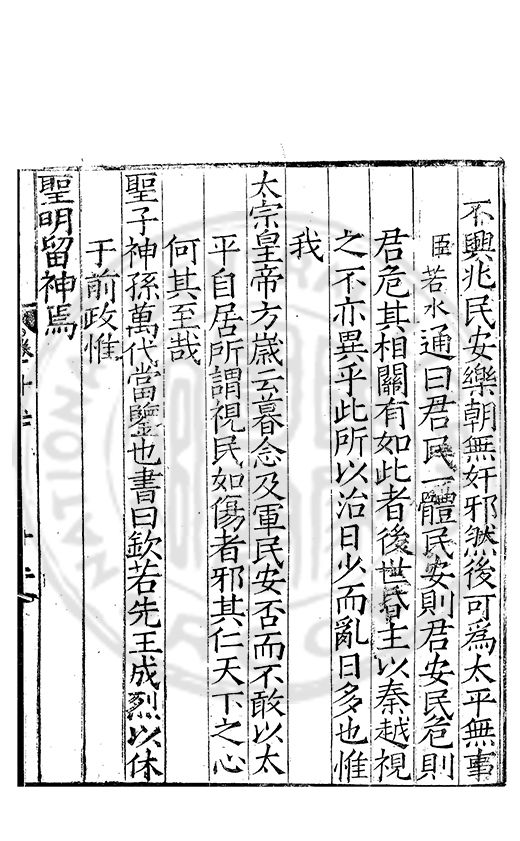 不興兆民安樂朝無奸邪然後可爲太平無事
臣若水通曰君民一體民安則君安民危則
君危其相關有如此者後世昏主以秦越視
之不亦異乎此所以治日少而亂日多也惟
我
太宗皇帝方歲云暮念及軍民安否而不敢以太
平自居所謂視民如傷者邪其仁天下之心
何其至哉
聖子神孫萬代當鑒也書曰欽若先王成烈以休
于前政惟
聖明留神焉